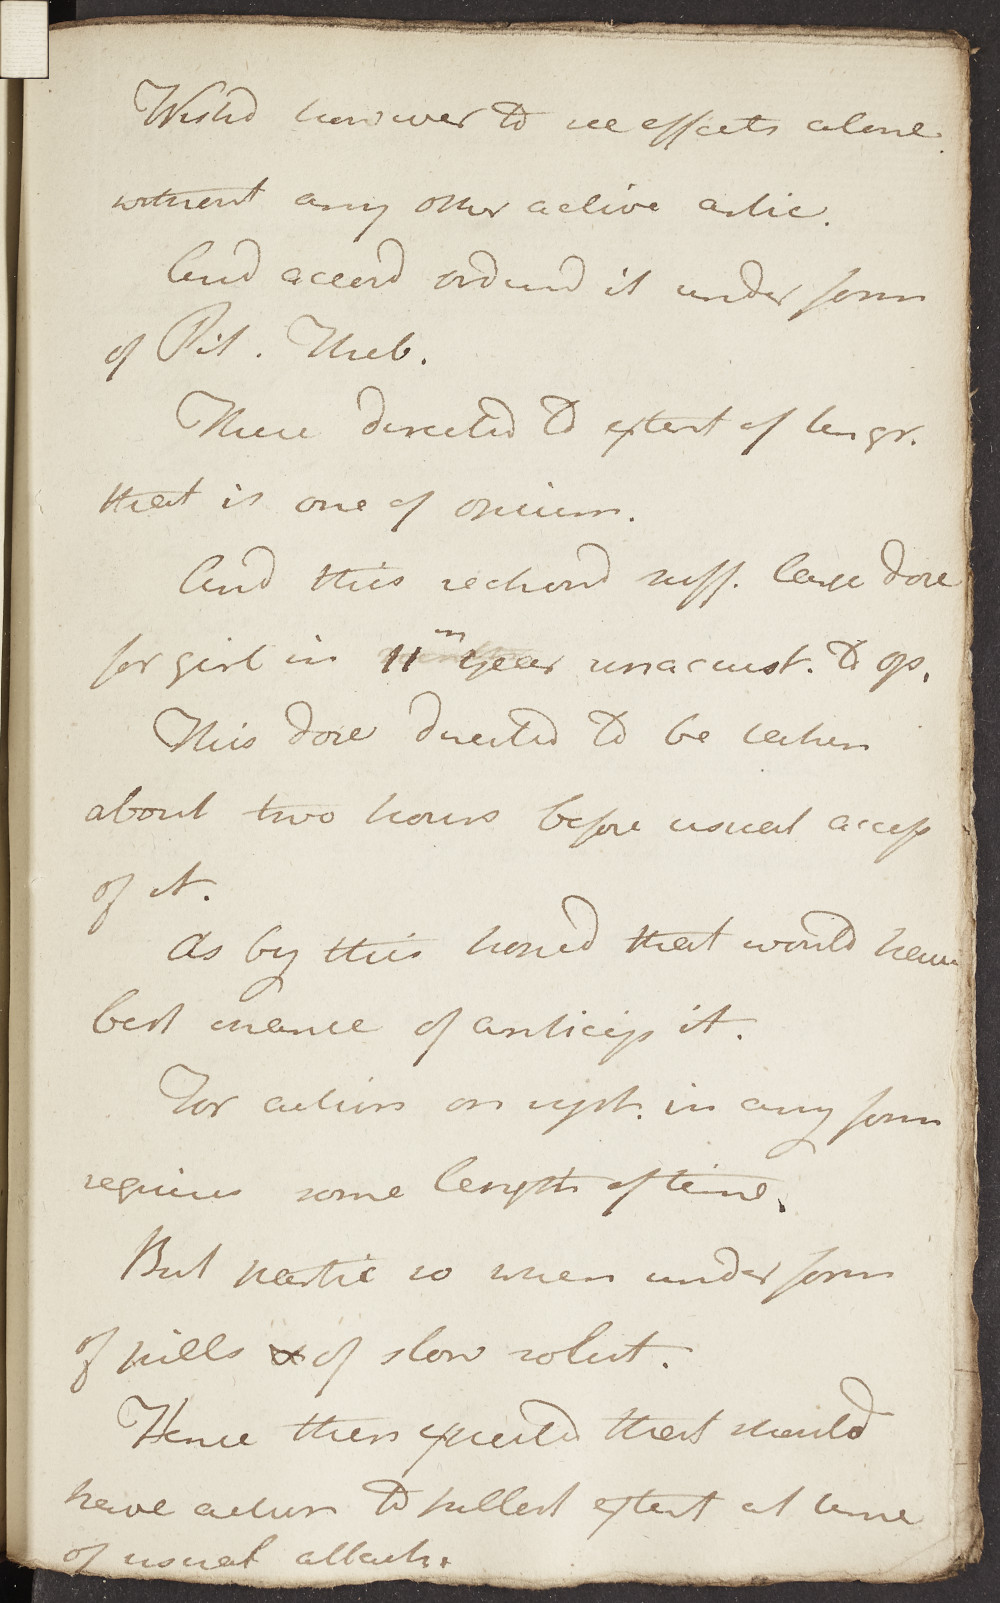 Wishd however to see effects alone.
without any other active artic.
And accord ordered it under form
of Pil. Theb.
These directed to extent of ten gr.
that is one of opium.
And this reckond suff. large dose
for girl in 11th year unaccust. to op.
This dose directed to be taken
about two hours before usual access
of it.
As by this hoped that would have
best chance of anticip it.
For action on syst. in any form
requires some length of time.
But partic so when under form
of pills of slow solut.
Hence then expected that should
have action to fullest extent at time
of usual attack.